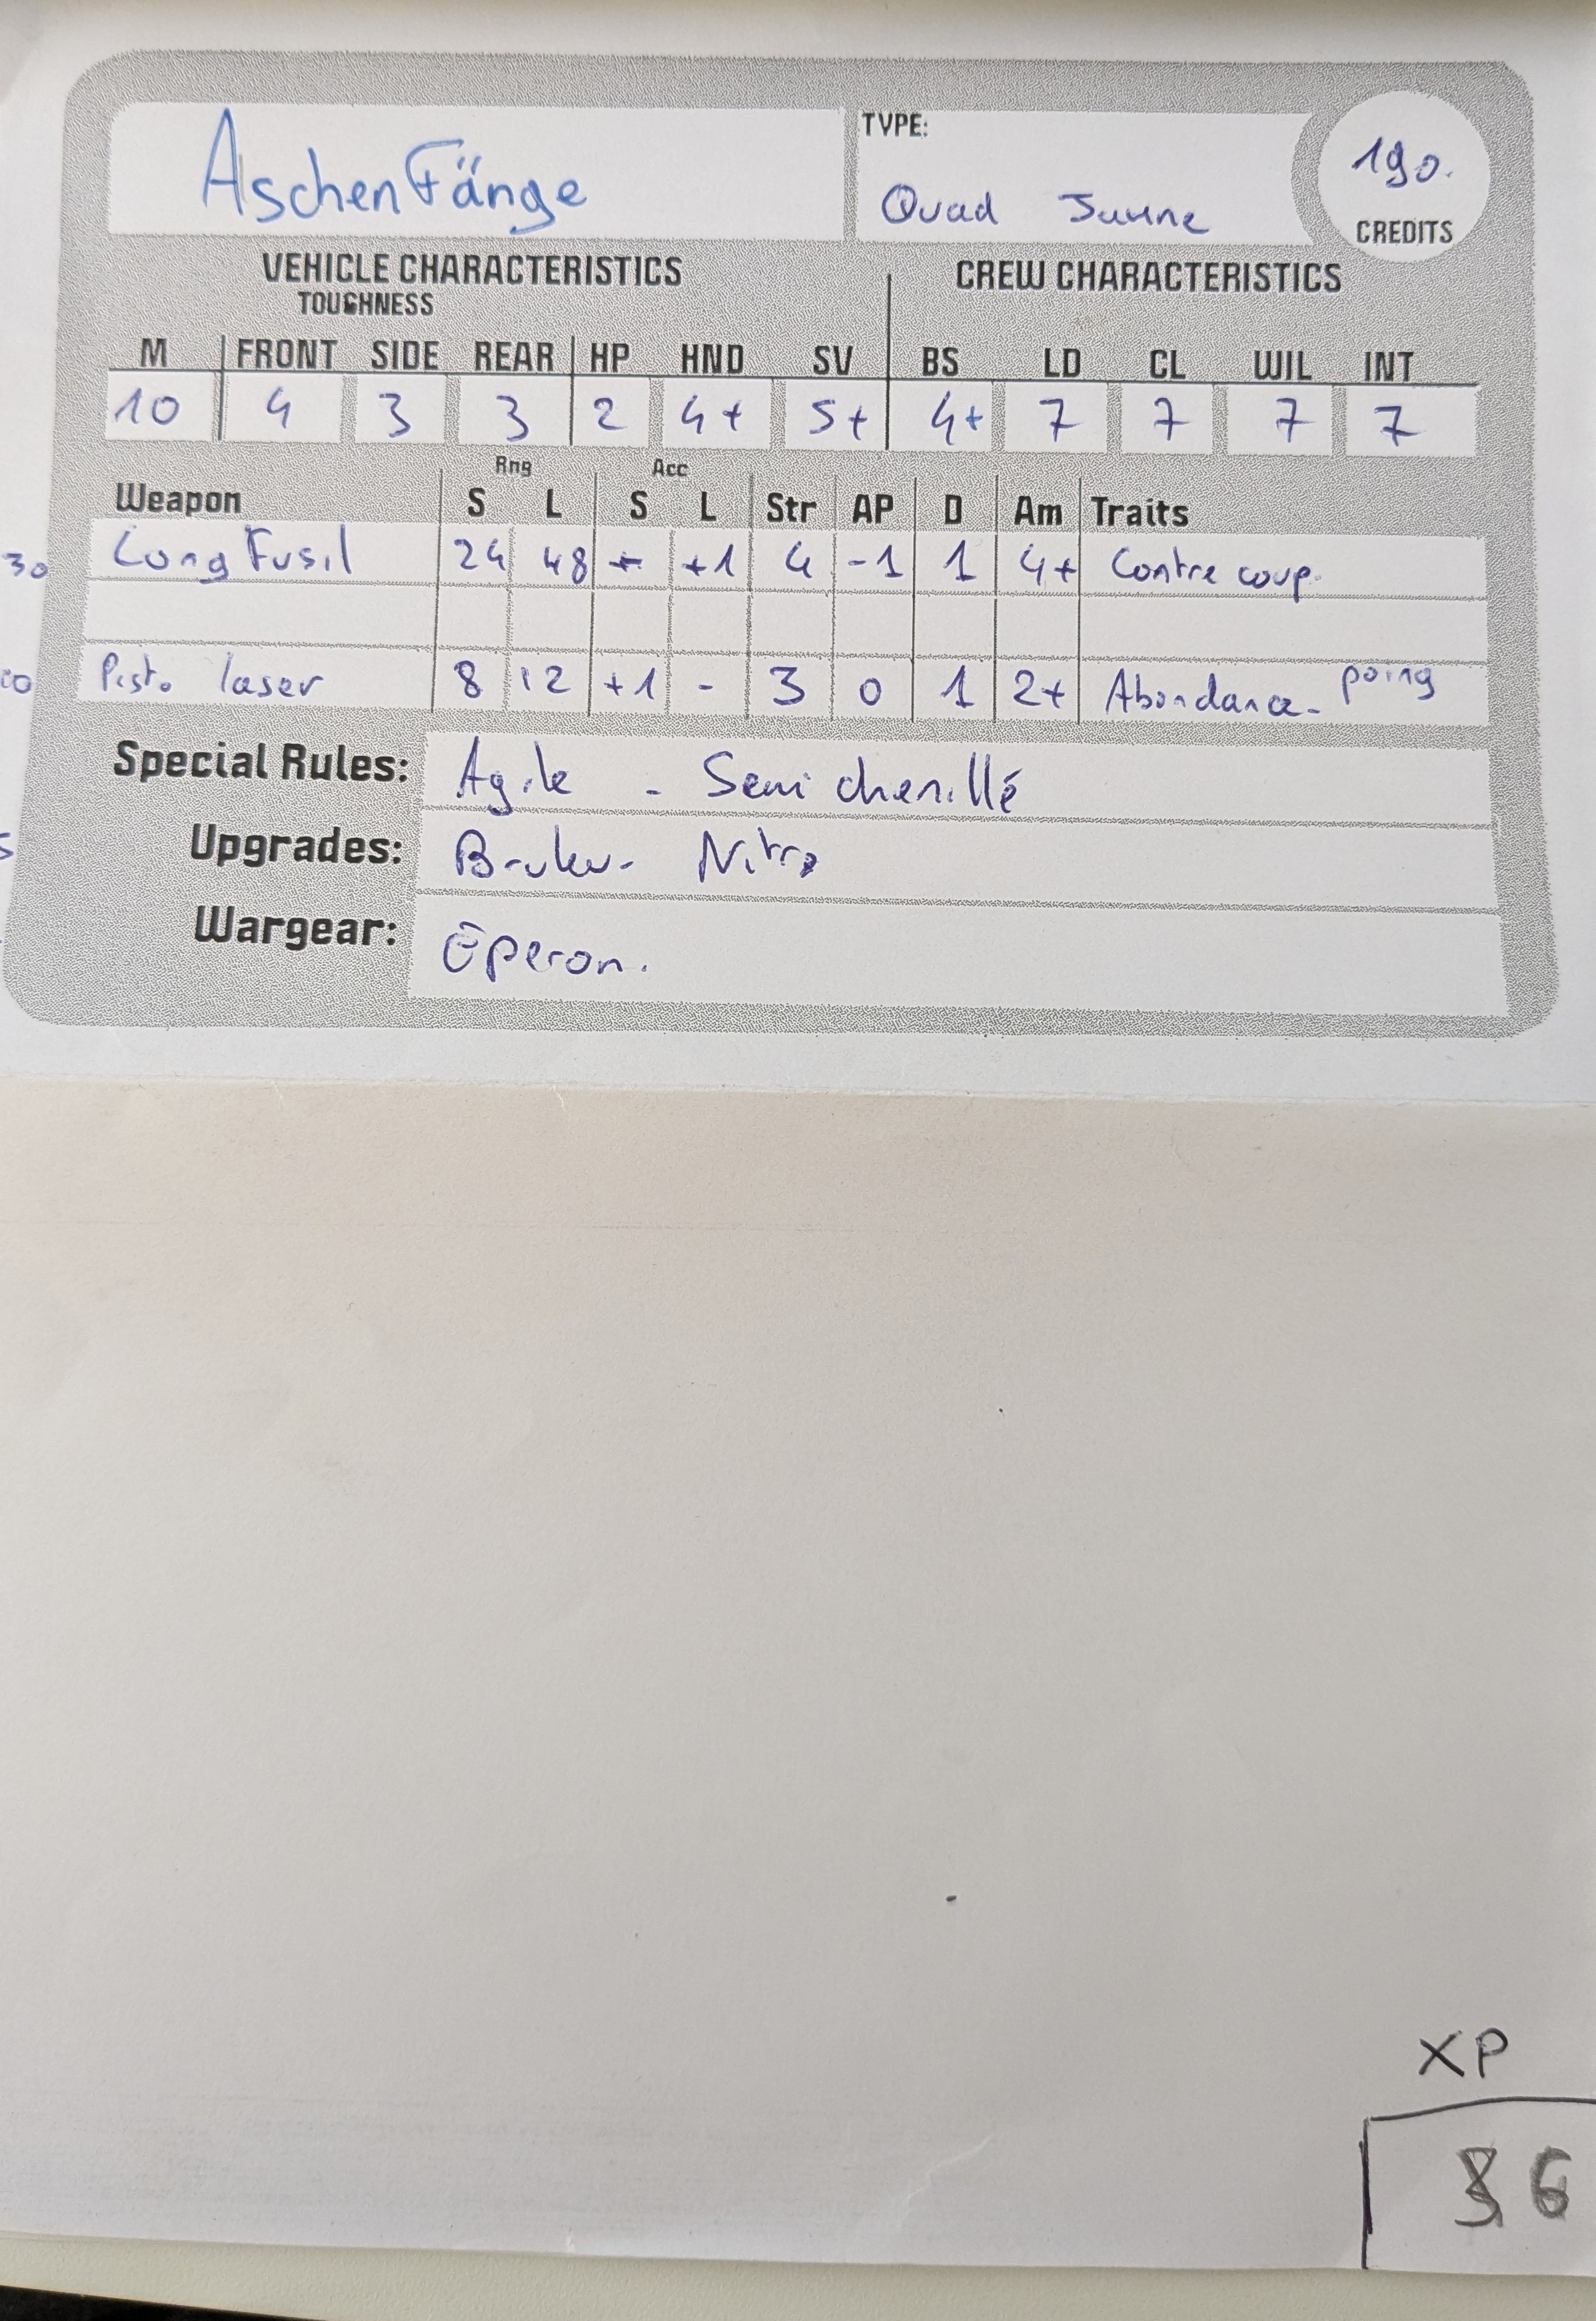 AschenFänge
TYPE:
Quad Jaune
190.
CREDITS
VEHICLE CHARACTERISTICS
TOUGHNESS
CREW CHARACTERISTICS
M FRONT SIDE REAR HP HND SV BS LD CL WIL INT
10 4 3 3 2 4+ 5+ 4+ 7 7 7 7
Rng Acc
Weapon S L S L Str AP D Am Traits
30 Long Fusil 24 48 - +1 4 -1 1 4+ Contre coup.
Pisto laser 8 12 +1 - 3 0 1 2+ Abondance - poing
Special Rules: Agile - Semi chenillé
Upgrades: Nitro
Wargear: Éperon.
XP
6